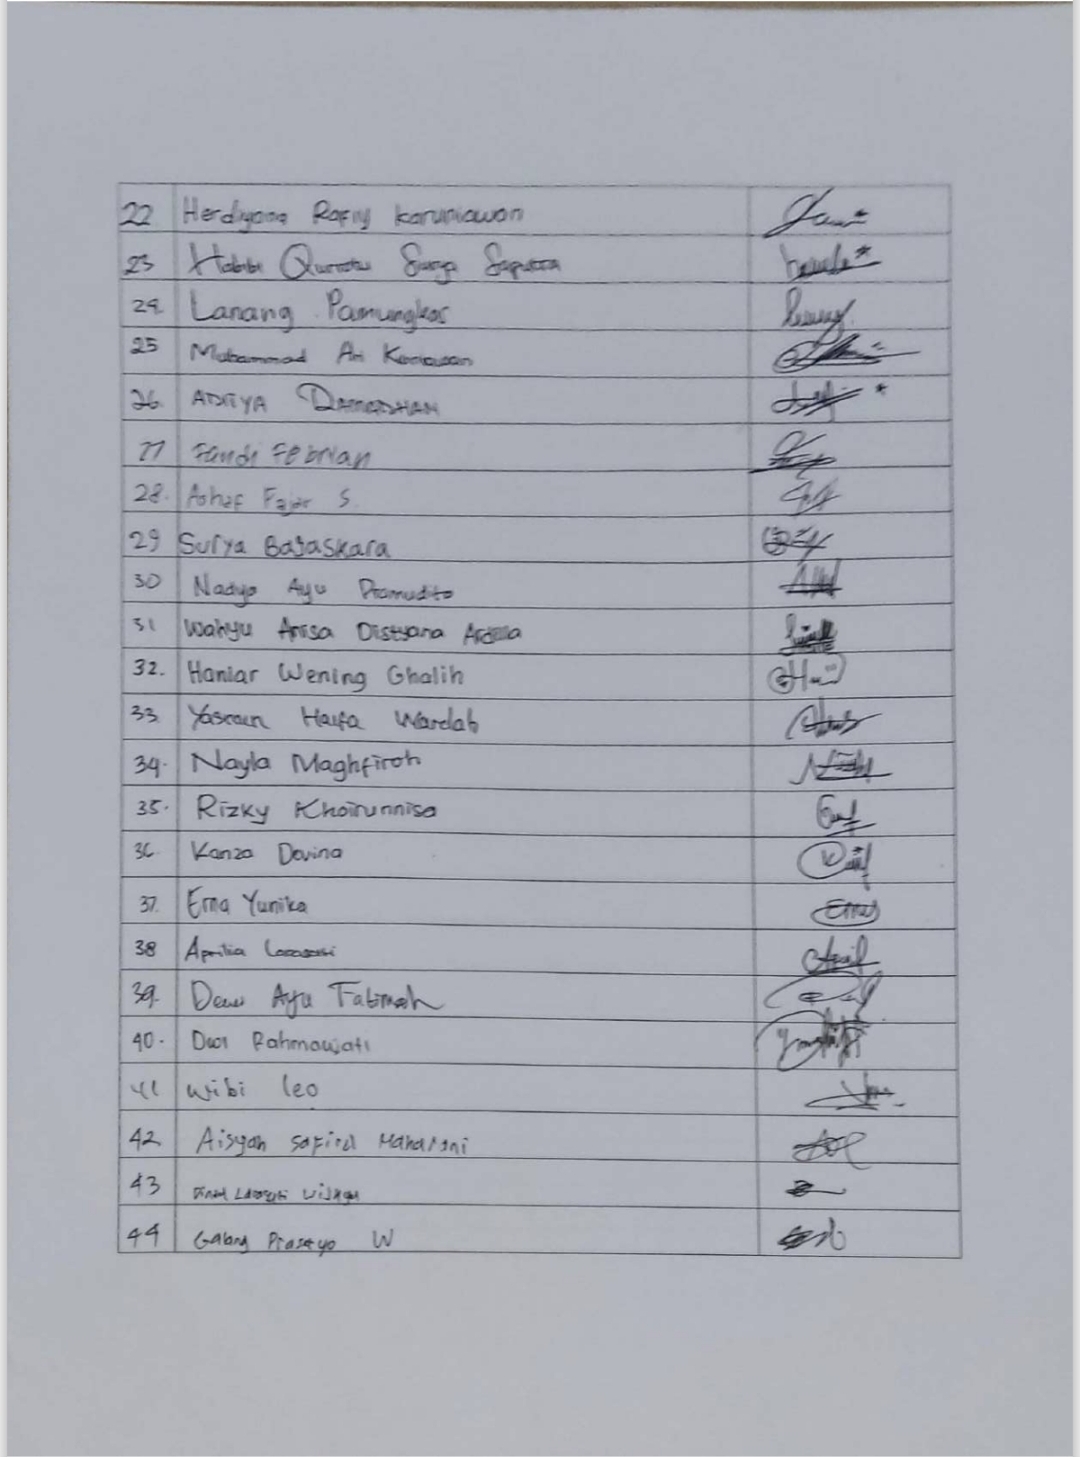 22 Herdiyana Rafiy Karuniawan
23 Habibi Qurrotu Surya Saputra
24. Lanang Pamungkas
25 Muhammad Ari Kurniawan
26. ADITYA
27 Fandi Febrian
28. Ashaf Fajar S.
29 Surya Bagaskara
30 Nadya Ayu Pramudita
31 Wahyu Anisa Distyana Ardilla
32. Haniar Wening Ghalih
33 Haifa Wardah
34. Nayla Maghfiroh
35. Rizky Khoirunnisa
36. Kanza Davina
37. Erna Yunika
38 Aprilia
39. Dewi Ayu Fatimah
40. Dwi Rahmawati
41 Wibi leo
42 Aisyah Safira Maharani
43
44 Galang Prasetyo W